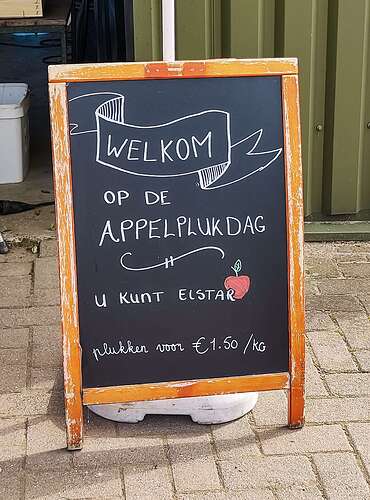 WELKOM
OP DE
APPELPLUKDAG
U KUNT ELSTAR
plukken voor €1.50 /KG